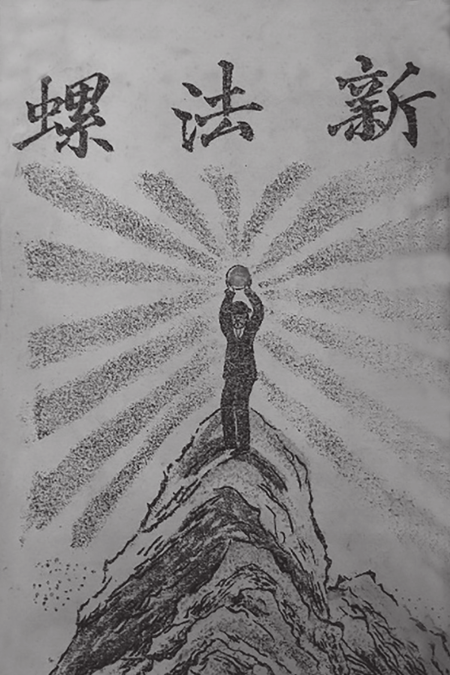 新法螺